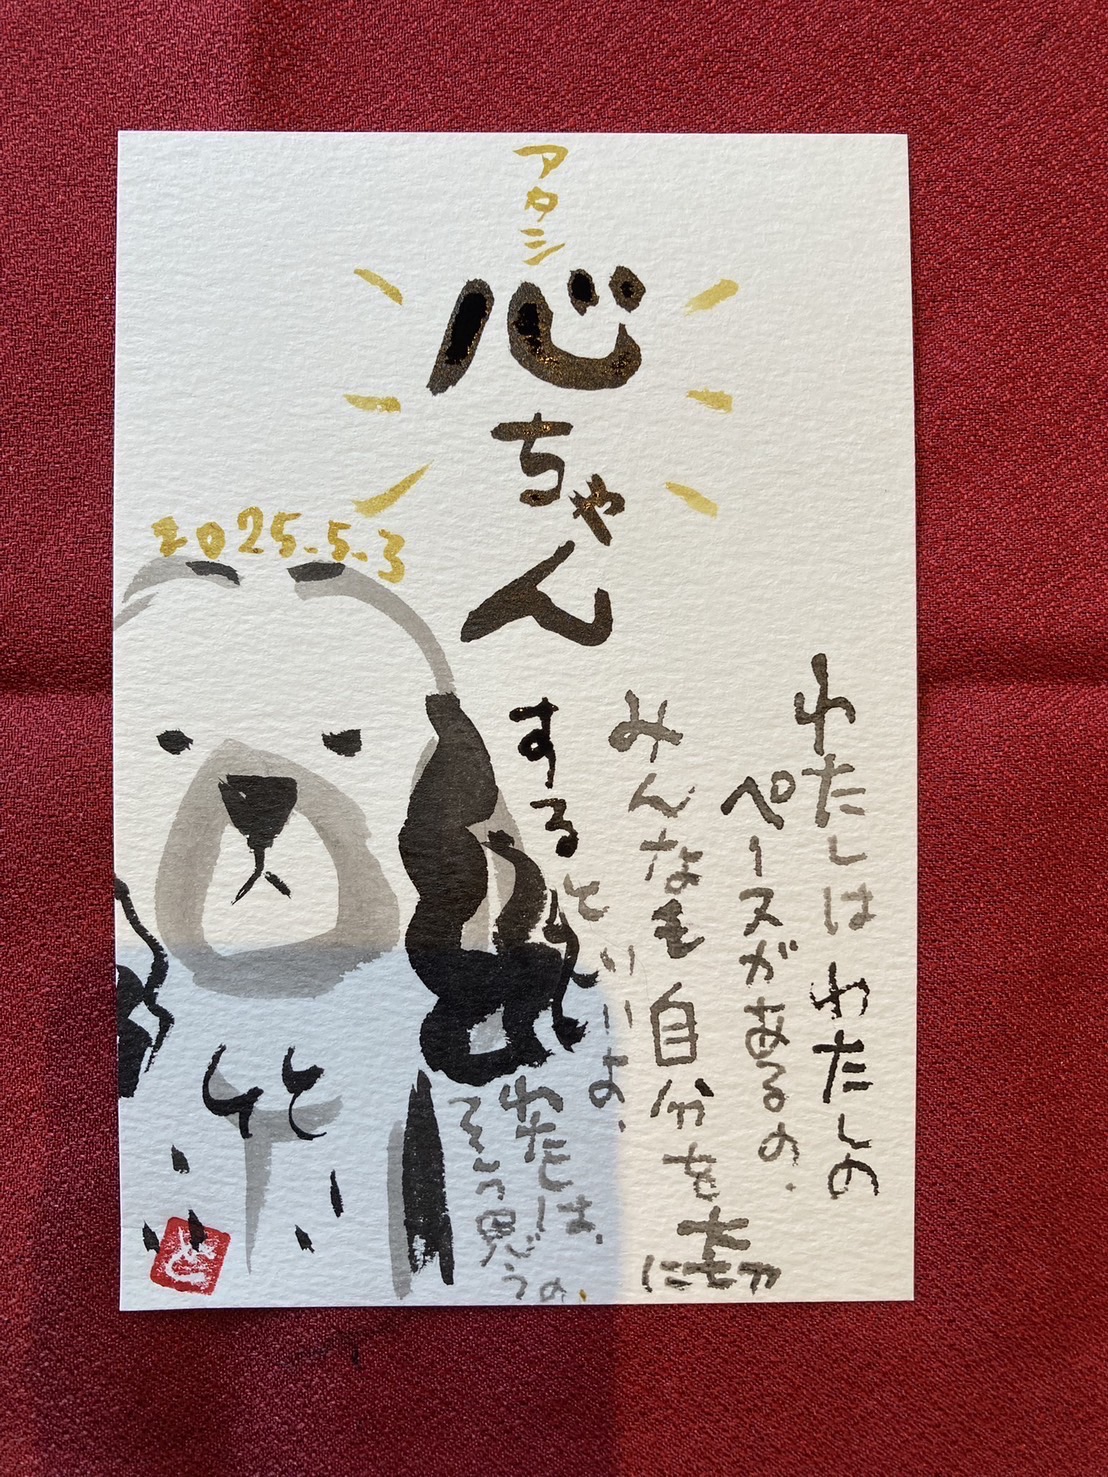 アカシ
心ちゃん
2025.5.3
わたしは わたしの
ペースがあるの.
みんなも 自分を大切
に
すると いいよ.
わたしは、
そう思うの.